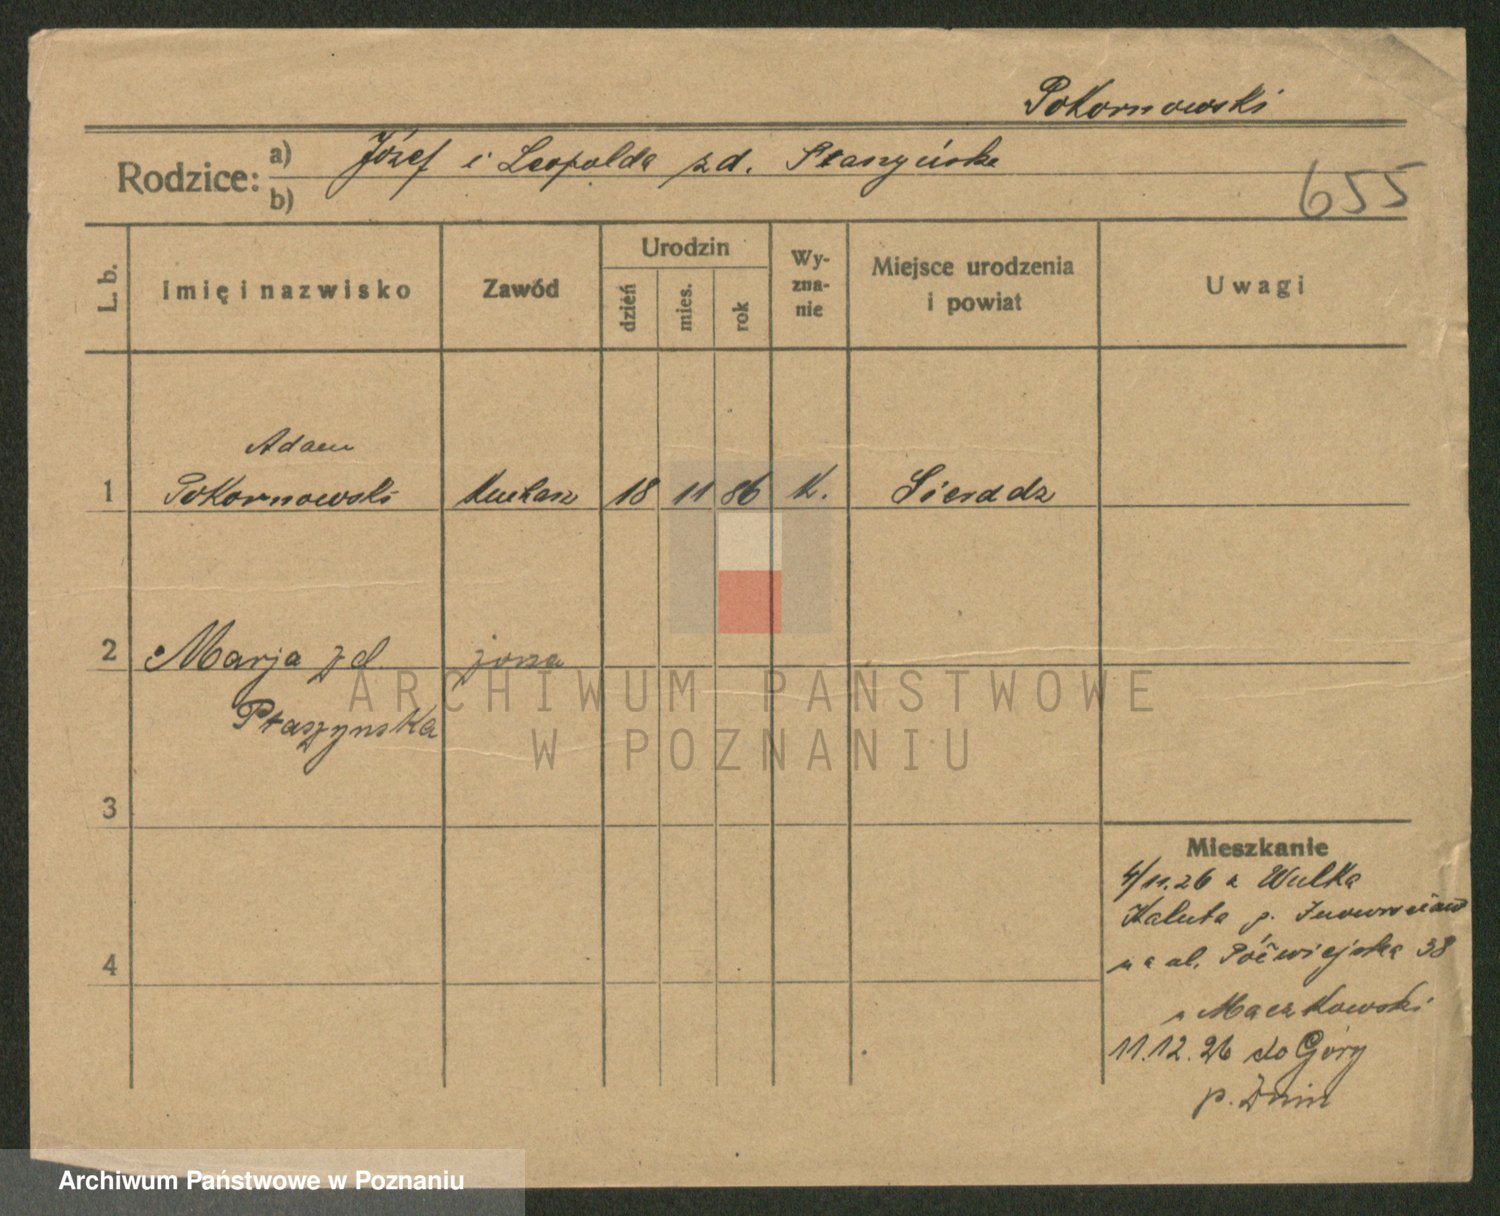 Pokornowski
Rodzice: a) Józef i Leopolda z d. Staszyńska
b)
655
L. b. Imię i nazwisko Zawód Urodzin dzień mies. rok Wy-zna-nie Miejsce urodzenia i powiat Uwagi
Adam
1 Pokornowski kucharz 18 11 86 K. Sieradz
2 Marja z d. żona
Ptaszynska
3
4
Mieszkanie
4/11.26 z Wulka
Kaluta p. Inowrocław
na ul. Półwiejska 38
u Maczkowski
11.12.26 do Góry
p. Żnin
ARCHIWUM PAŃSTWOWE
W POZNANIU
Archiwum Państwowe w Poznaniu